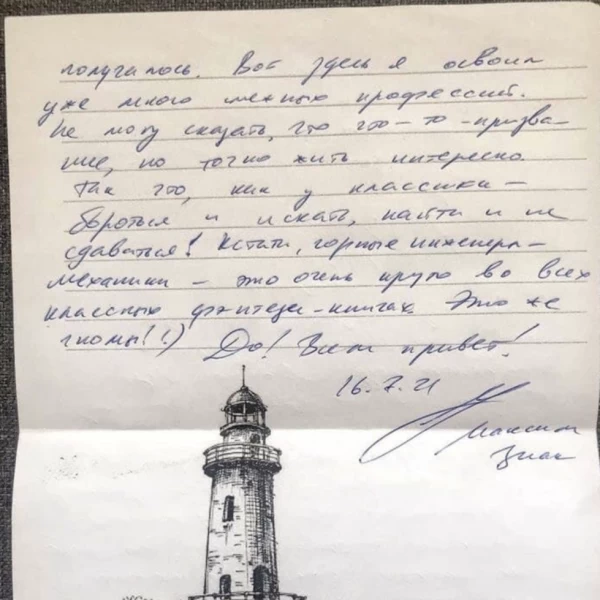 получилось. Вот здесь я освоил
уже много нежных профессий.
Не могу сказать, что что-то -призва-
ние, но точно жить интересно.
Так что, как у классика -
бороться и искать, найти и не
сдаваться! Кстати, горные инженеры-
механики - это очень круто во всех
классных фэнтези-книгах. Это же
гномы! :) До! Всем привет!
16.7.21
Максим
Знак